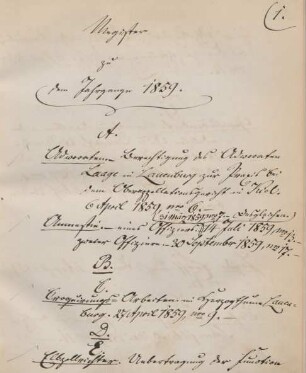 (1.
Register
zu
dem Jahrgange 1859.
A.
Advocaten. Berechtigung des Advocaten
Laage in Lauenburg zur Praxis bei
dem Oberappellationsgericht in Kiel.
6 April 1859, no 6.
(31 März 1859, no 7.
Amnestie eines Offiziers 14 Juli 1859, no
zweier Offiziere 30 September 1859, no 17.
B.
C.
Croquirungs Arbeiten im Herzogthum Lauen-
burg. 27 April 1859, no 9.
D.
E.
Elbzollrichter. Uebertragung der Function